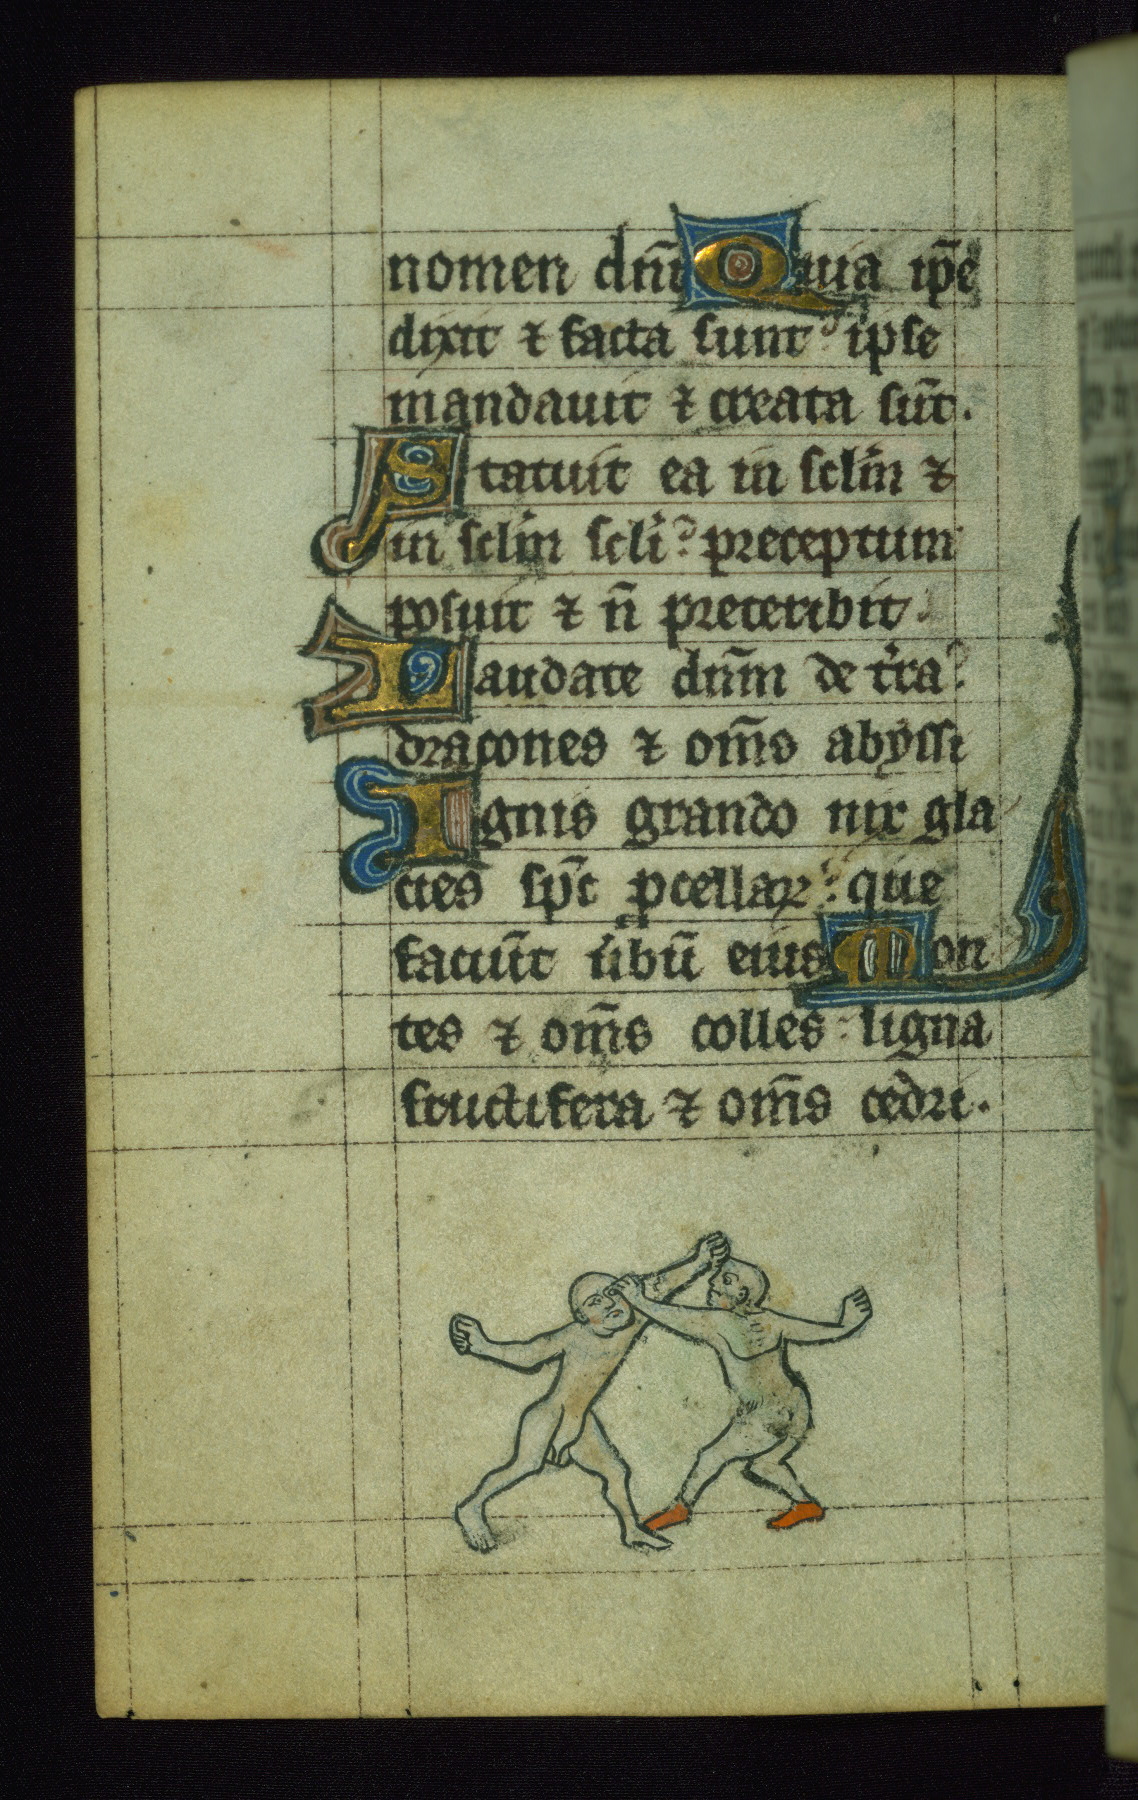 nomen dñi Quia ip̃e
dixit ⁊ facta sunt ipse
mandauit ⁊ creata sũt.
Statuit ea in sclm̃ ⁊
in sclm̃ scli̇ preceptum
posuit ⁊ ñ preteribit.
Laudate dñm de tr̃ra
dracones ⁊ om̃s abyssi
Ignis grando nix gla
cies sp̃c ꝓcellaꝝ que
faciũt u̇bũ eius Mon
tes ⁊ om̃s colles ligna
fructifera ⁊ om̃s cedri.